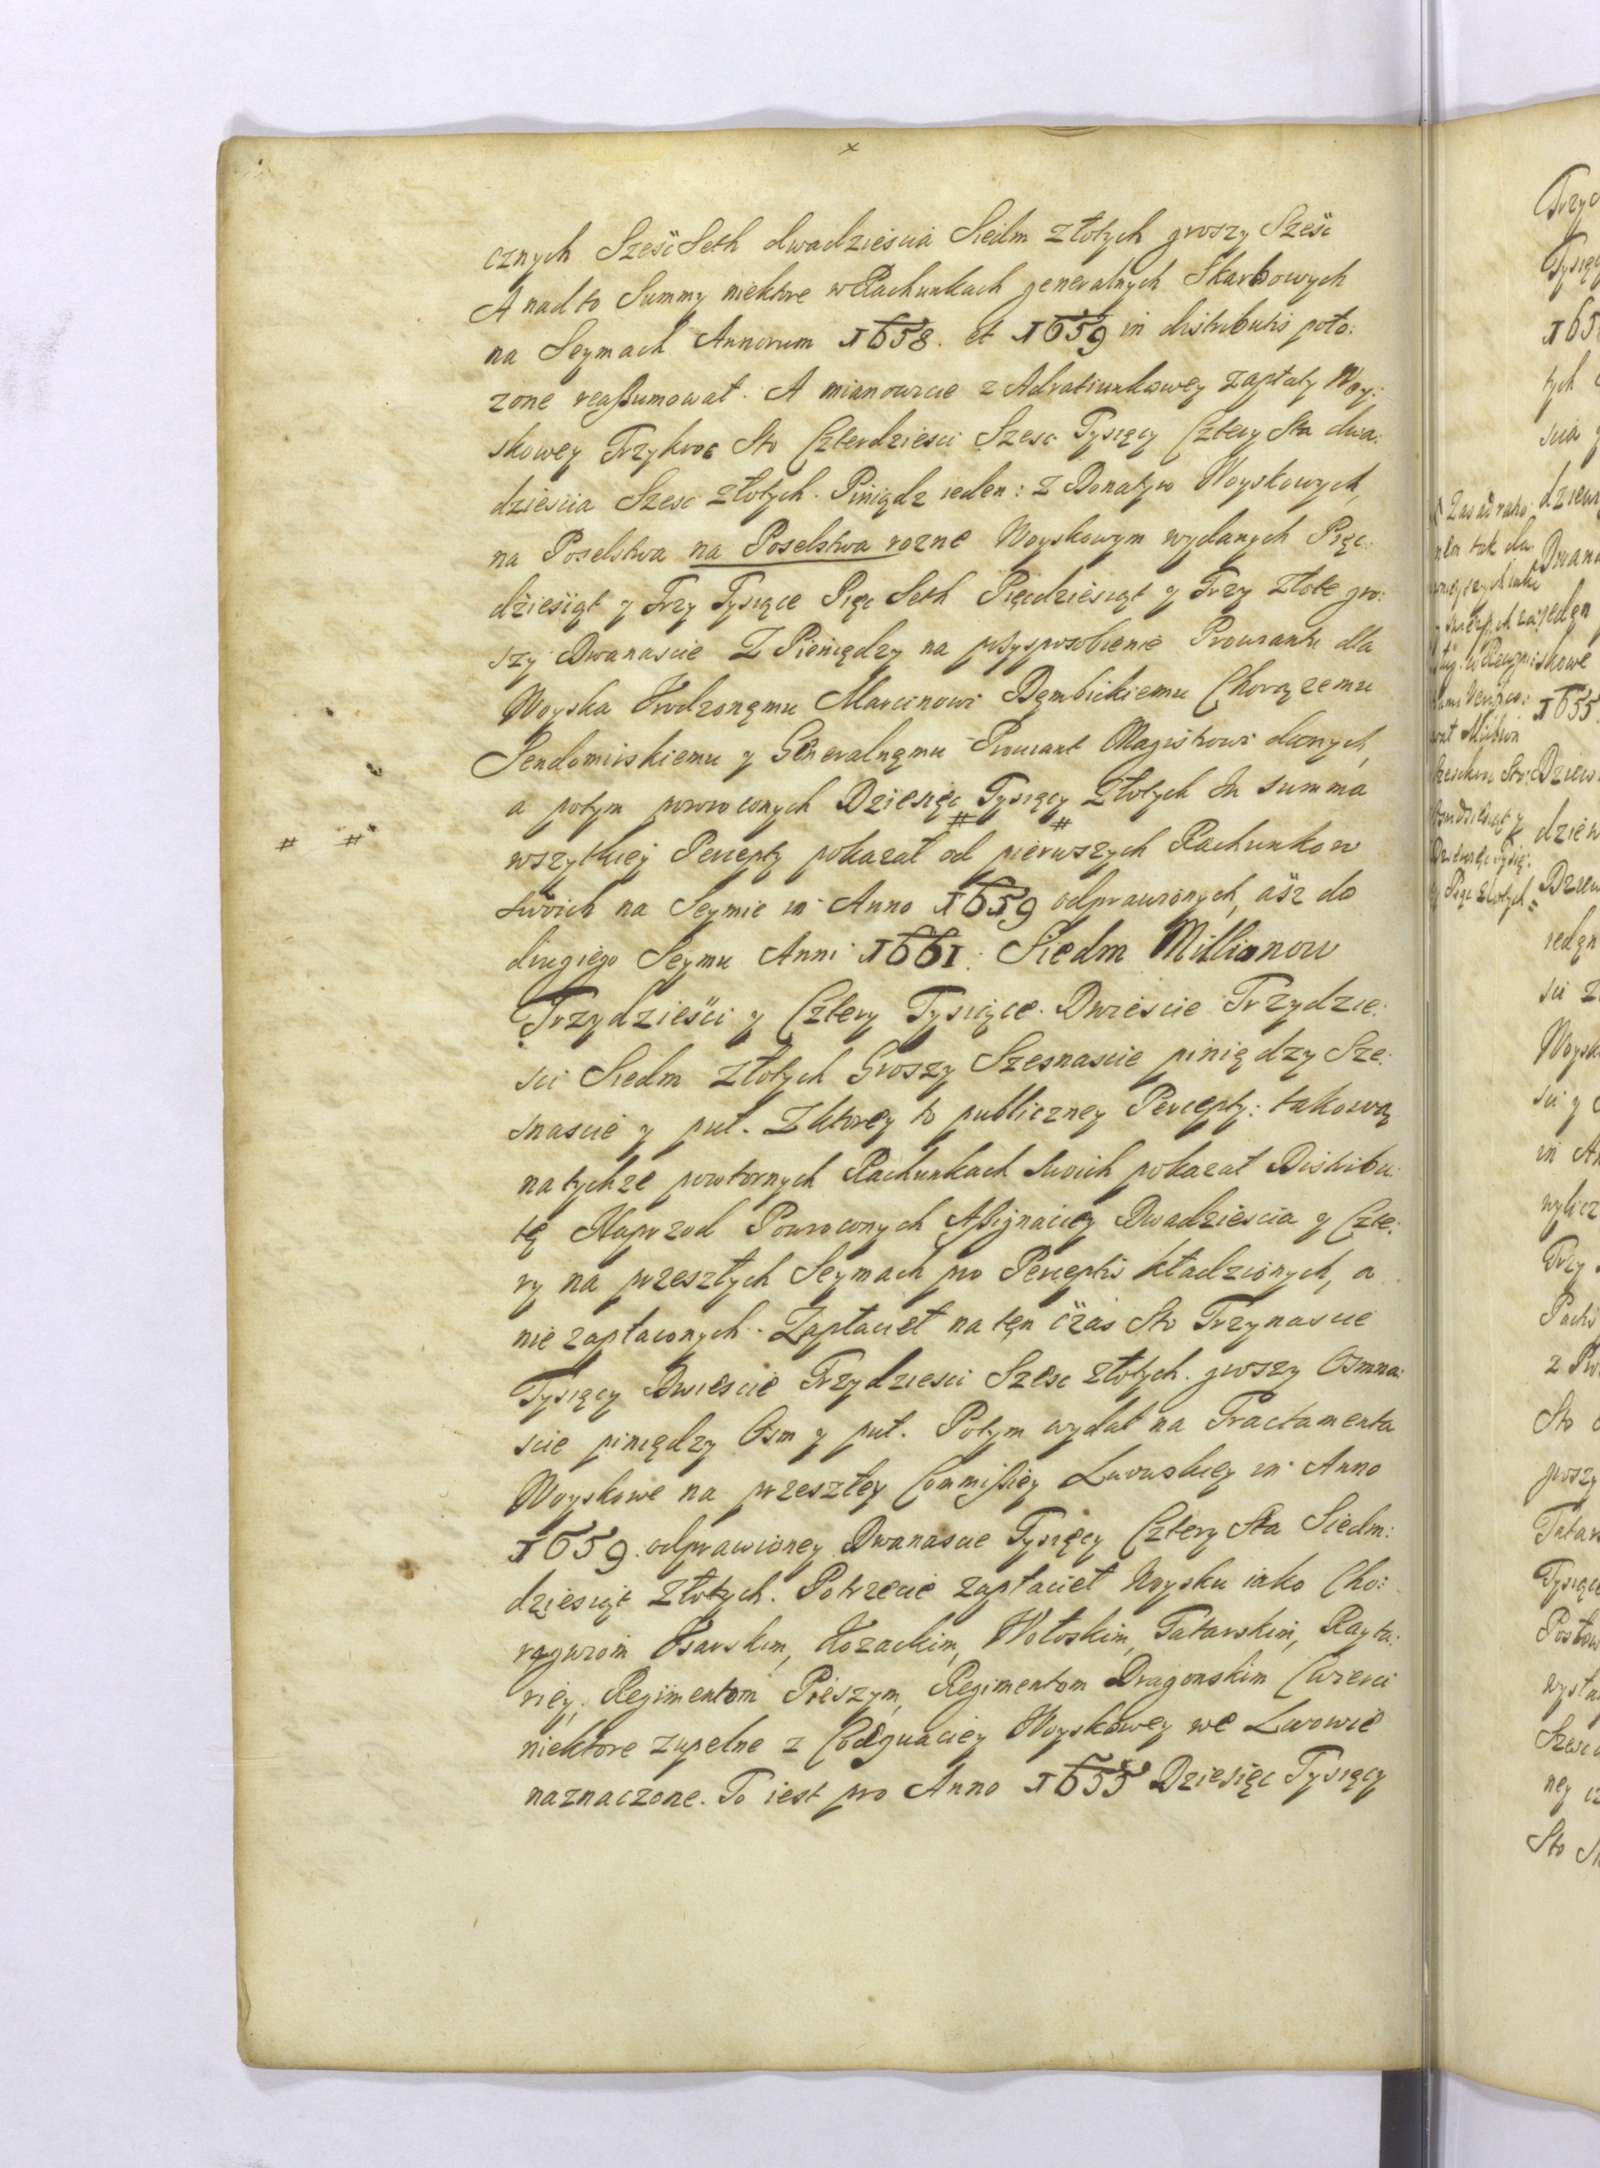 cznych Sześć Seth dwadzieścia Siedm złotych groszy Sześć
A nad to Summy niektore w Rachunkach generalnych Skarbowych
na Seymach Annorum 1658. et 1659 in distributis poło:
zone reaßumował. A mianowicie z Adratiunkowey zapłaty Woy:
skowey Trzykroć Sto Czterdziesci Szesc Tysięcy Cztery Sta dwa:
dziescia Szesc złotych. Piniądz ieden: z Donatyw Woyskowych,
na Poselstwa na Poselstwa rozne Woyskowym wydanych Pięc:
dziesiąt y Trzy Tysiące Pięc Seth Pięcdziesiąt y Trzy złote gro:
szy Dwanascie Z Pieniędzy na przysposobienie Prowiantu dla
Woyska Urodzonęmu Marcinowi Dęmbickiemu Chorązemu
Sendomirskiemu y Generalnęmu Prowiant Magistrowi danych,
a potym powroconych Dziesięc Tysięcy Złotych In summa
# #
wszytkiey Percepty pokazał od pierwszych Rachunkow
# #
swoich na Seymie in Anno 1659 odprawionych, asz do
drugiego Seymu Anni 1661: Siedm Millionow
Trzydzieści y Cztery Tysiące Dwiescie Trzydzie:
sci Siedm złotych Groszy Szesnascie piniędzy Sze:
snascie y puł. Z ktorey to publiczney Percepty: takową
na tychze powtornych Rachunkach swoich pokazał Distribu:
tę Naprzod Powroconych Aßignaciey Dwadziescia y Czte:
ry na przeszłych Seymach pro Perceptis kładzionych, a
nie zapłaconych. Zapłacieł na tęn czas Sto Trzynascie
Tysięcy Dwiescie Trzydziesci Szesc złotych. groszy Osmna:
scie piniędzy Osm y puł. Potym wydał na Tractamenta
Woyskowe na przeszłey Commißiey Lwowskiey in Anno
1659. odprawioney Dwanascie Tysięcy Cztery Sta Siedm:
dziesiąt Złotych. Potrzecie zapłacieł Woysku iako Cho:
rągwiom Usarskim, Kozackim, Wołoskim, Tatarskim, Rayta:
riey, Regimentom Pieszym, Regimentom Dragonskim Cwierci
niektore zupełne z Coæquaciey Woyskowey we Lwowie
naznaczone. To iest pro Anno 1655 Dziesięc Tysięcy